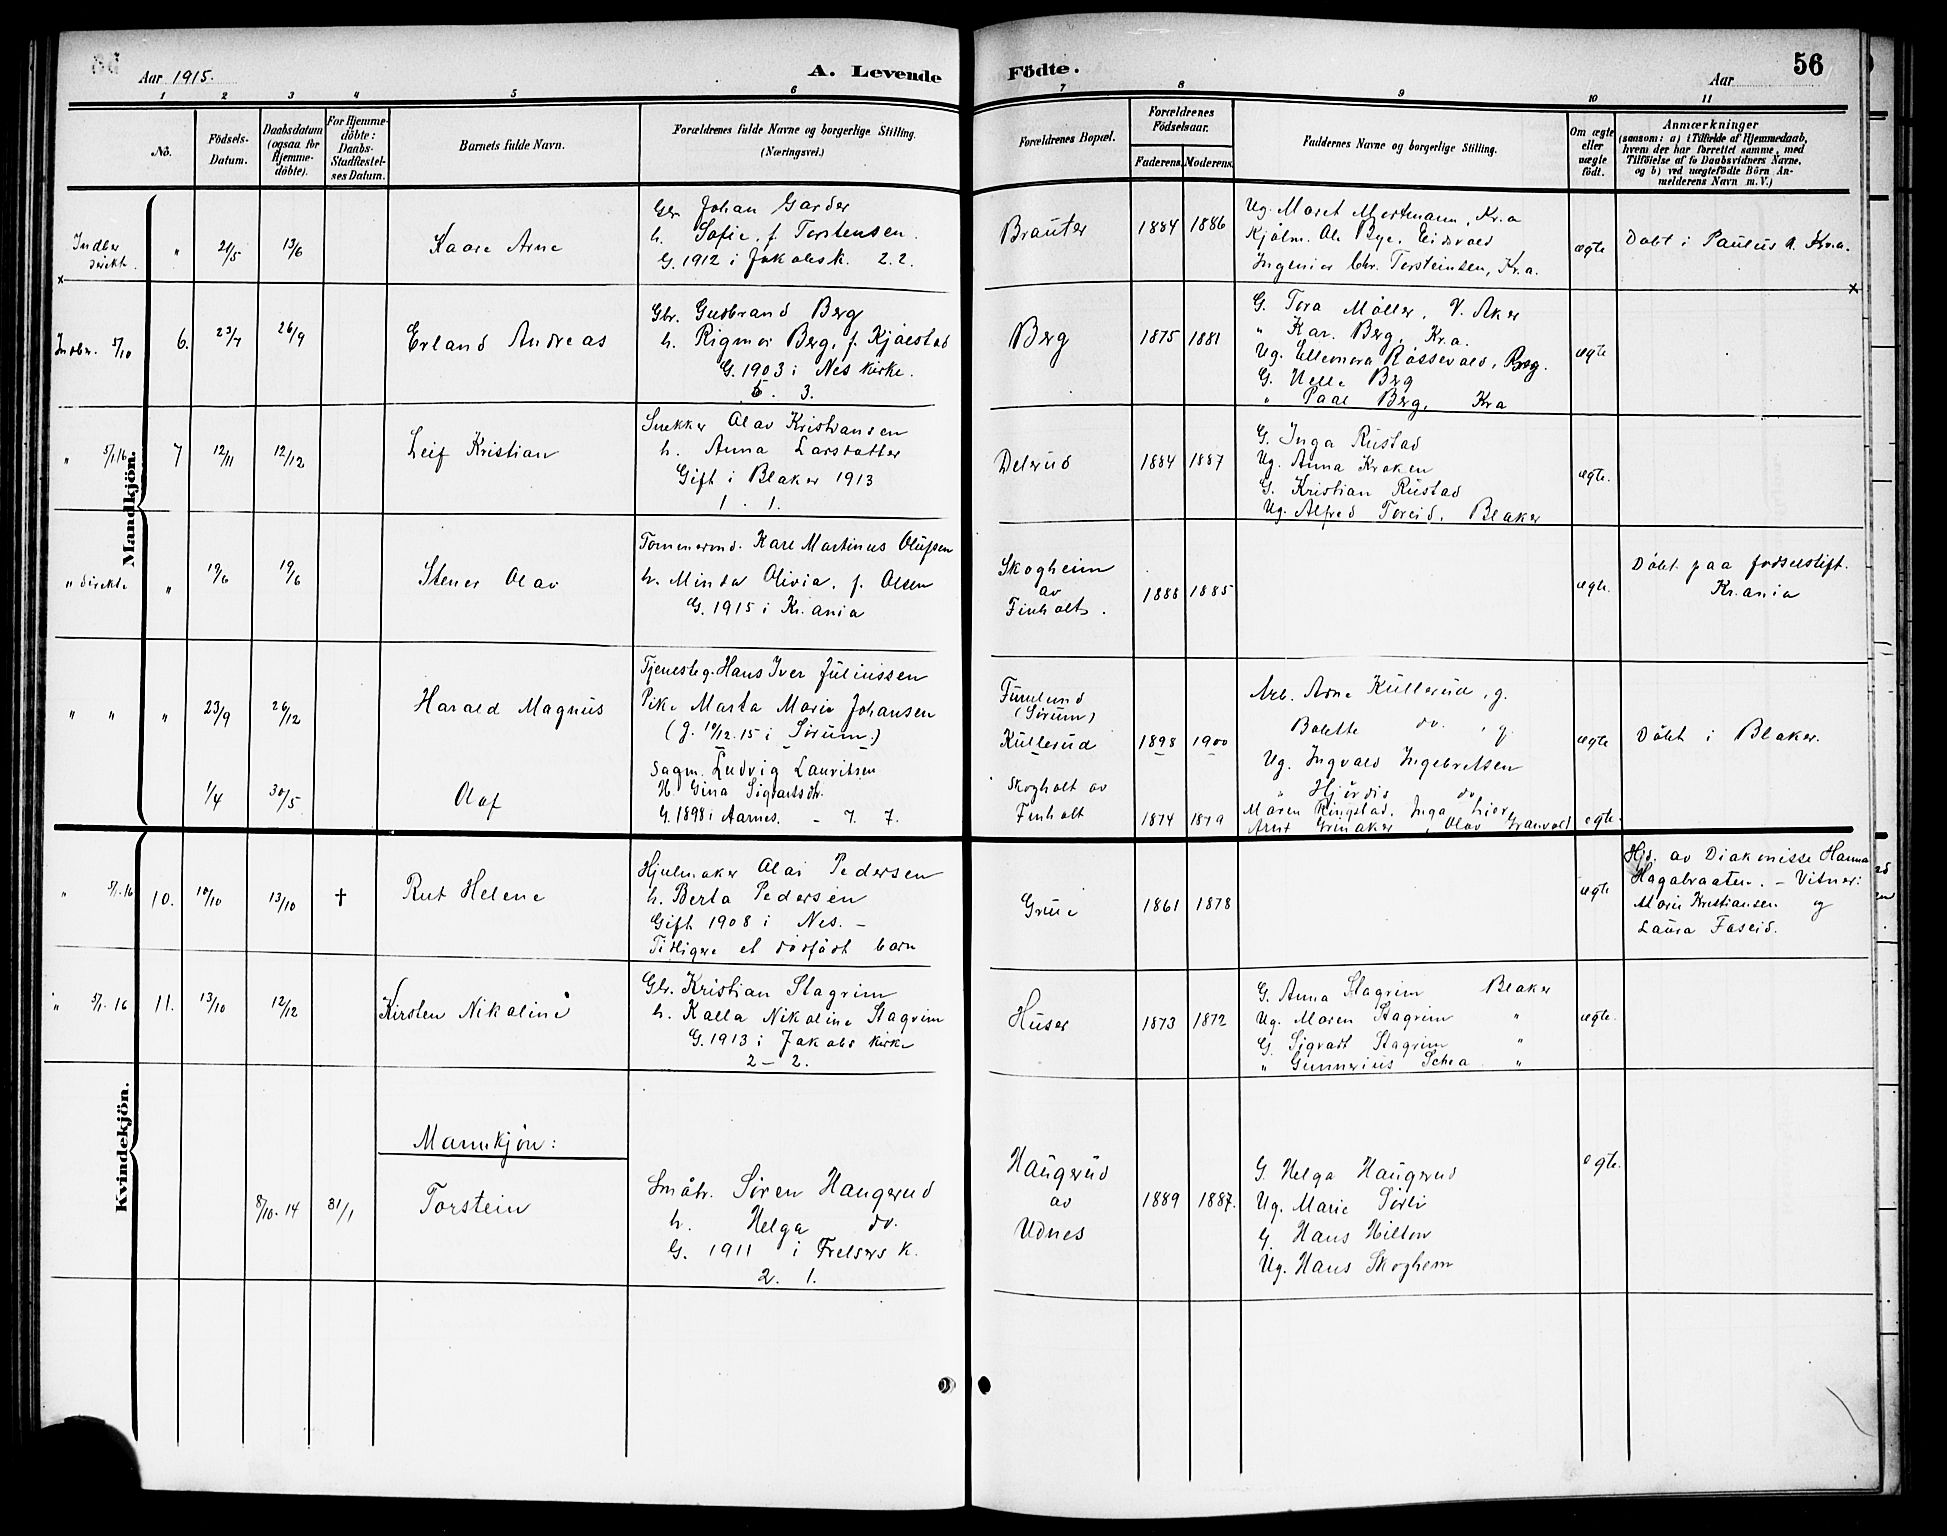 Aar 1915.
A. Levende Födte.
Aar
56
1 2 3 4 5 6 7 8 9 10 11
No.
Födsels-Datum.
Daabsdatum (ogsaa for Hjemme-döbte).
For Hjemme-döbte: Daabs-Stadfæstel-ses Datum.
Barnets fulde Navn.
Forældrenes fulde Navne og borgerlige Stilling.
(Næringsvei.)
Forældrenes Bopæl.
Forældrenes Födselsaar.
Faderens. Moderens.
Faddernes Navne og borgerlige Stilling.
Om ægte eller uægte födt.
Anmærkninger
(saasom: a) i Tilfælde af Hjemmedaab,
hvem der har forrettet samme, med
Tilföielse af to Daabsvidners Navne,
og b) ved uægtefödte Börn An-
melderens Navn m. V.)
Mandkjön.
Indber direkt. " 21/5 13/6
Kaare Arne
Gbr. Johan Garder
h. Sofie, f. Torstensen.
G. 1912 i Jakobsk. 2.2.
Brauter 1884 1886
Ug. Maret Mortmann, Kr.a
Kjølm. Ole Bye, Eidsvold
Ingeniør Chr. Torsteinsen, Kr.a.
ægte
Døbt i Paulus k. Kr.a.
x
x
Indber. 5/10 6. 23/7 26/9
Erland Andreas
Gbr. Gudbrand Berg
h. Rigmor Berg, f. Kjølstad
G. 1903 i Nes kirke.
5. 3.
Berg 1875 1881
G. Tora Møller, V. Aker
" Kar. Berg, Kr.a.
Ug. Elleonora Røssevold, Berg.
G. Helle Berg
" Paal Berg, Kra
ægte
" 5/1 16 7 12/11 12/12
Leif Kristian
Snekker Olav Kristiansen
h. Anna Larsdatter
Gift i Blaker 1913
1. 1.
Delerud 1884 1887
G. Inga Rustad
Ug. Anna Kroken
G. Kristian Rustad
Ug. Alfred Toreid, Blaker
ægte.
" direkte " 19/6 19/6
Stener Olav
Tømmermd. Karl Martinus Olufsen
h. Minda Olivia, f. Olsen
G. 1915 i Kr.ania
Skogheim
av
Finholt.
1888 1885
ægte.
Døbt paa fødselsstift.
Kr.ania
" " " 23/9 26/12
Harald Magnus
Tjenesteg. Hans Iver Juliussen
Pike Marta Marie Johansen
(g. 10/12.15 i Sørum.)
Furulund
(Sørum)
Kullerud
1898 1900
Arb. Arne Kullerud, g.
Bolette do. , g.
Ug. Ingvald Ingebretsen
" Hjørdis do
ægte
Døbt i Blaker.
1/4 30/5
Olaf
Sagm. Ludvig Lauritsen
H. Gina Sigvartsdtr.
G. 1898 i Aarnes. - 7. 7.
Skogholt av
Finholt
1874 1879
Maren Ringstad, Inga Lier,
Arnt Grinaker, Olav Granvold
egte.
Kvindekjön.
" 5/1.16 10. 10/10 13/10 †
Rut Helene
Hjulmaker Olai Pedersen
h. Berta Pedersen
Gift 1908 i Nes. -
Tidligere et dødfødt barn
Grue 1861 1878
ægte
Hjd. av Diakonisse Hanna
Hagabraaten. - Vitner:
Marie Kristiansen og
Laura Faseid.
" 5/1.16 11. 13/10 12/12
Kirsten Nikoline
Gbr. Kristian Stagrim
h. Kalla Nikoline Stagrim
G. 1913 i Jakobs kirke
2 - 2.
Huser 1873 1872
G. Anna Stagrim Blaker
Ug. Maren Stagrim "
G. Sigvart Stagrim "
" Gunnerius Schea "
ægte.
Mannkjøn:
8/10.14 31/1
Torstein
Småbr. Søren Haugerud
h. Helga do.
G. 1911 i Frelsers k.
2. 1.
Haugerud
av
Udnes
1889 1887.
G. Helga Haugerud
Ug. Marie Sørli
G. Hans Hilton
Ug. Hans Skoghem
egte.